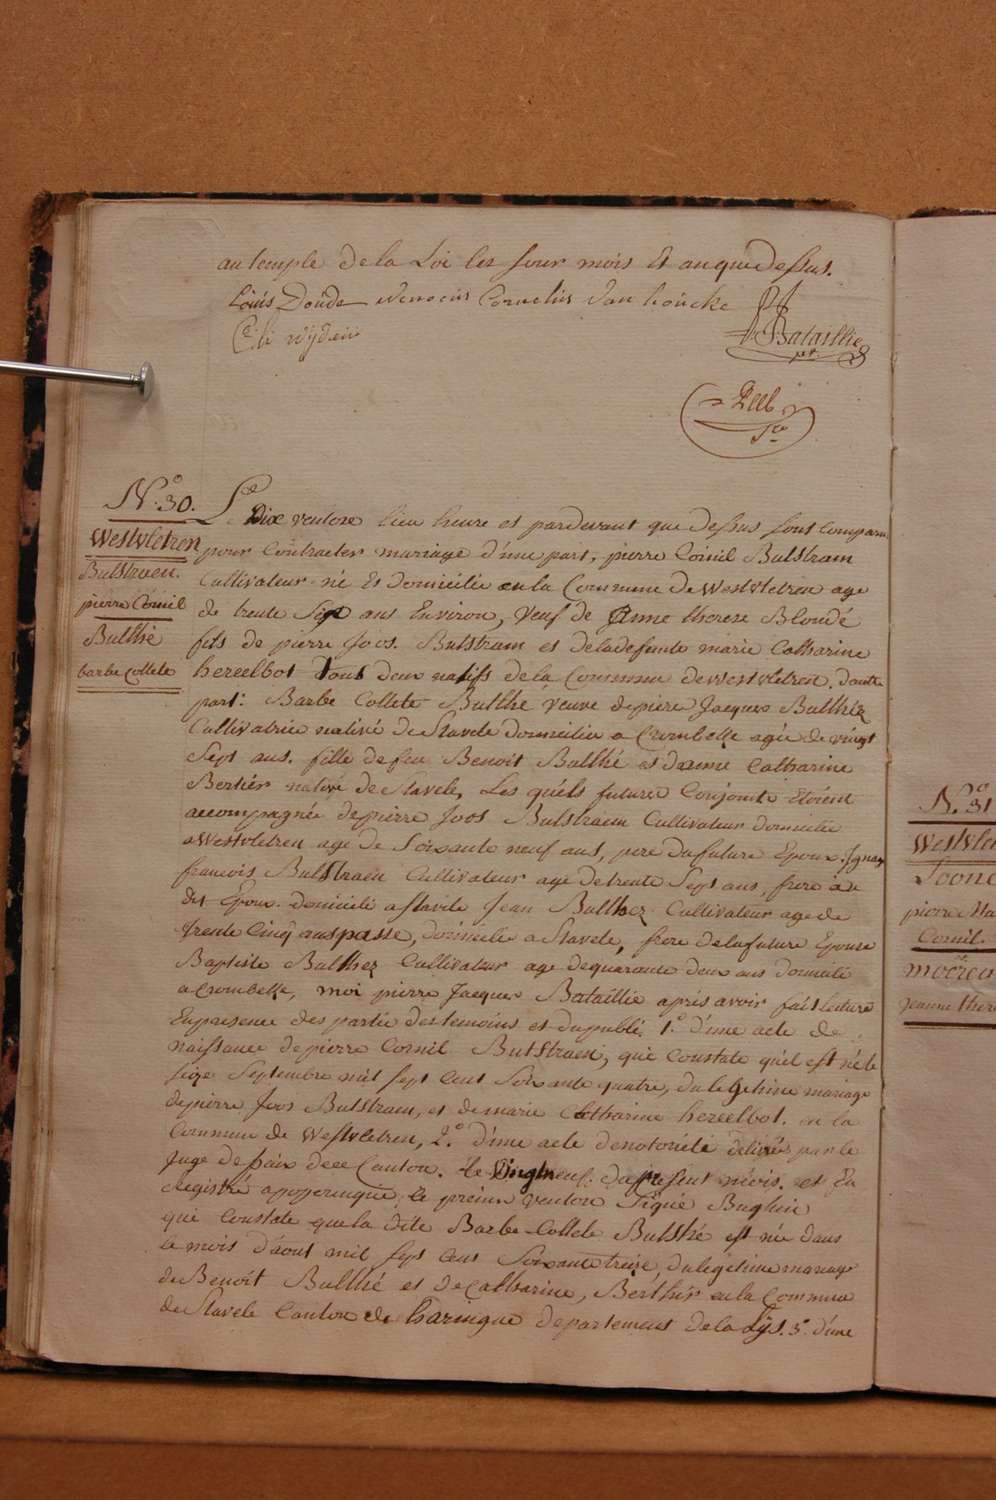 au temple de la Loi les jour mois Et an que Dessus.
Louis Doude Cornelius Van houcke
P J Bataillie
N.º 30.
Westvletren
Bulstraen.
pierre Cornil
Bulthé
barbe Collete
Le Dix ventose lieu heure et pardevant que dessus sont Comparu
pour Contracter mariage d'une part, pierre Cornil Bulstraen
Cultivateur né Et domicilié en la Commune de Westvletren age
de trente Sept ans Environ, Veuf de Anne therese Blondé
fils de pierre Joos. Bulstraen et de la defunte marie Catharine
hezeelbot Tous deux natifs de la Commune de Westvletren. dautre
part: Barbe Collete Bulthé veuve de piere Jacques Bulthez
Cultivatrice native de Stavele domiciliee a Crombelle agée de vingt
Sept ans. fille de feu Benoit Bulthé et danne Catharine
Bertier native de Stavele, Les quéls futures Conjoints Etoient
accompagnée de pierre Joos Bulstraen Cultivateur domicilié
a Westvletren agé de Soixante neuf ans, pere du future Epoux. Ignace
francois Bulstraen Cultivateur age de trente Sept ans, frere du
dit Epoux. domicilié a Stavele Jean Bulthez Cultivateur age de
trente Cinq ans passé, domicilié a Stavele, frere de la future Epouse
Baptiste Bulthez Cultivateur age de quarante deux ans domicilié
a Crombelle, moi pierre Jacques Bataillie aprés avoir fait lecture
En presence des partie des temoins et du publi. 1.º d'une acte de
naissance de pierre Cornil Bulstraen, qui Constate qu'el est né le
Septembre mil sept Cent Soixante quatre, du legetime mariage
de pierre Joos Bulstraen, et de marie Catharine hezeelbot. en la
Commune de Westvletren, 2.º d'une acte de notorieté delivrés par le
Juge de paix de ce Canton. le Vingtneuf. du present mois. et En
Registré a poperingue le premier ventose Signé Bughin
qui Constate que la dite Barbe Collete Bulthé est née dans
le mois d'aout mil Sept Cent Soixante treize, du legetime mariage
de Benoit Bulthé et de Catharine, Berthier en la Commune
de Stavele Canton de haringue departement de la Lÿs. 3.º d'une
N.º 31
Westvlet
pierre
Cornil.